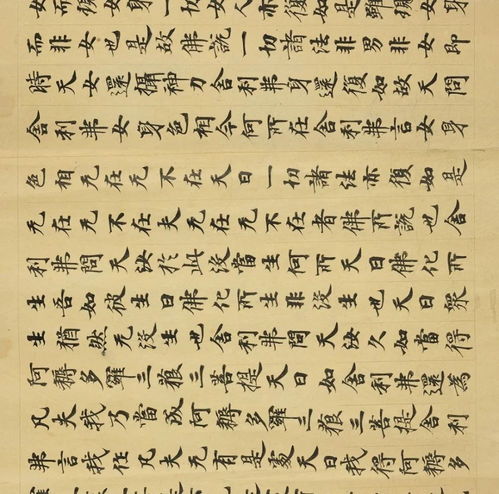 女而現女身一切女人亦復如是雖現女身
而非女也是故佛說一切諸法非男非女即
時天女還攝神力舍利弗身還復如故天問
舍利弗女身色相今何所在舍利弗言女身
色相无在无不在天曰一切諸法亦復如是
无在无不在夫无在无不在者佛所說也舍
利弗問天汝於此沒當生何所天曰佛化所
生吾如彼生曰佛化所生非沒生也天曰眾
生猶然无沒生也舍利弗問天汝久如當得
阿耨多羅三藐三菩提天曰如舍利弗還為
凡夫我乃當成阿耨多羅三藐三菩提舍利
弗言我住凡夫无有是處天曰我得阿耨多